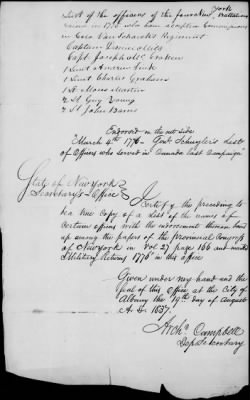 List of the officers of the four New York Battalions
raised in 1775 who have accepted Commissions
in Colo Van Schaicks Regiment
Captain Daniel Mills
Capt. Joseph McCracken
1 Lieut Andrew Fink
1 Lieut Charles Graham
1 Lt Moses Martin
2 Lt Guy Young
2 Lt John Barns
Endorsed on the out side
"March 4th 1776 - Genl Schuyler's List
of Officers who served in Canada last Campaign"
State of New York
Secretary's Office
I certify the preceding to
be a true Copy of a List of the names of
Certain officers with the endorsement thereon bound
up among the papers of the Provincial Congress
of New York in Vol: 27 page 166 and marked
"Military Returns 1776" in this office
Given under my hand and the
Seal of this Office, at the City of
Albany the 19th day of August
A. D. 1837.
Archd Campbell
Dep Secretary